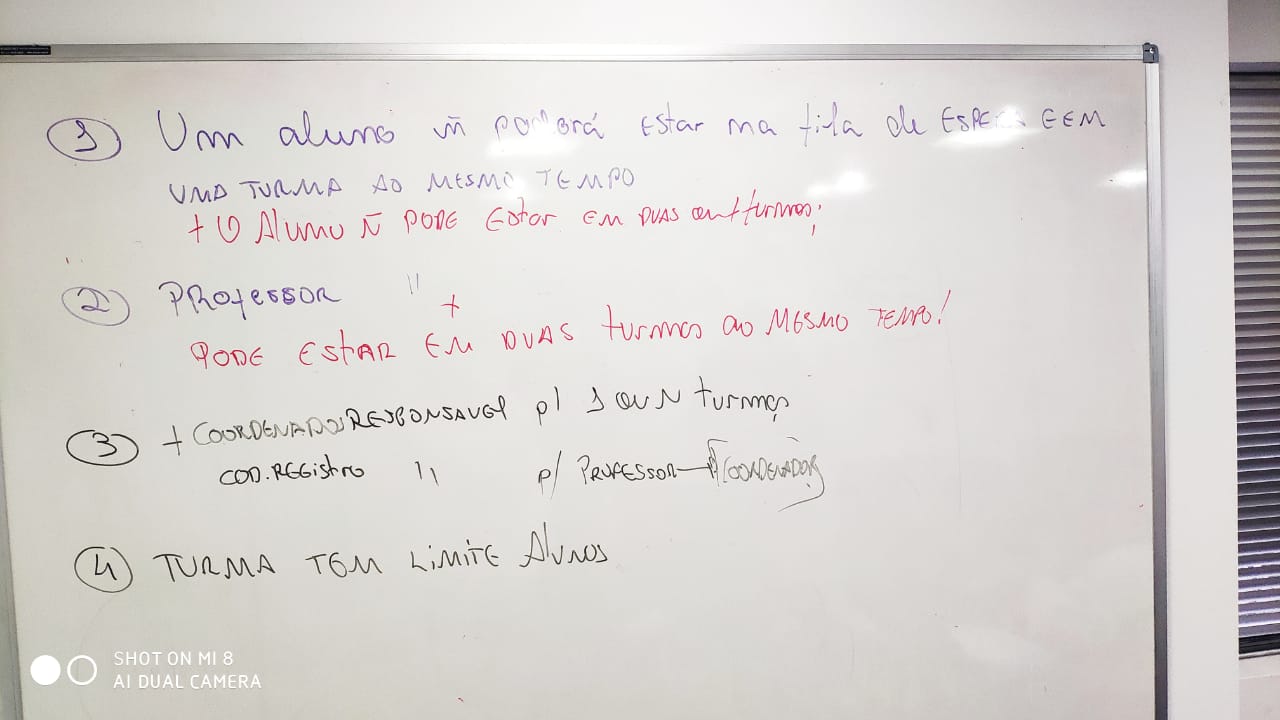 1 Um aluno ñ poderá Estar na fila de ESPERA E EM
UMA TURMA AO MESMO TEMPO
+ O Aluno Ñ PODE Estar EM DUAS turmas;
2 PROfessOR "
+
PODE EStAR EM DUAS turmas ao MESMO TEMPO!
3 + COORDENADOR RESPONSAVEl p/ 1 OU N turmas
COD. REGistro " p/ PROFESSOR COORDENADOR
4 TURMA TEM LiMiTE AlUNOS
SHOT ON MI 8
AI DUAL CAMERA